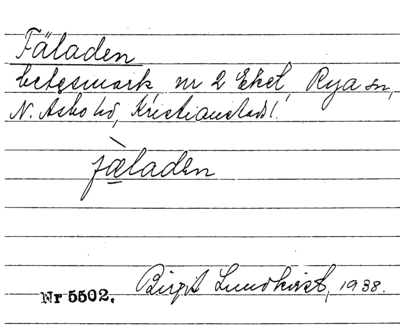 Fäladen
betesmark nr 2 Eket, Rya sn,
N. Åsbo hd, Kristianstads l.
fæ̀laden
Birgit Lundkvist, 1938.
Nr 5502.